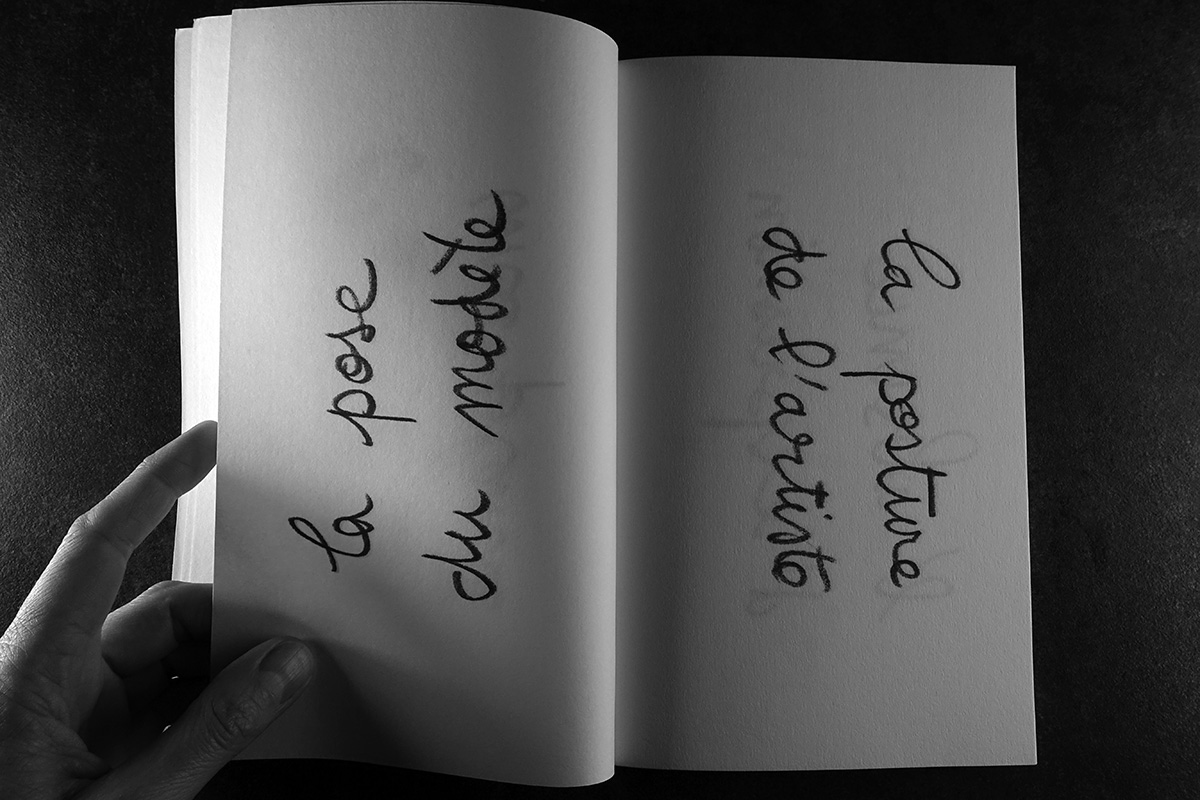 la pose
du modèle
la posture
de l'artiste